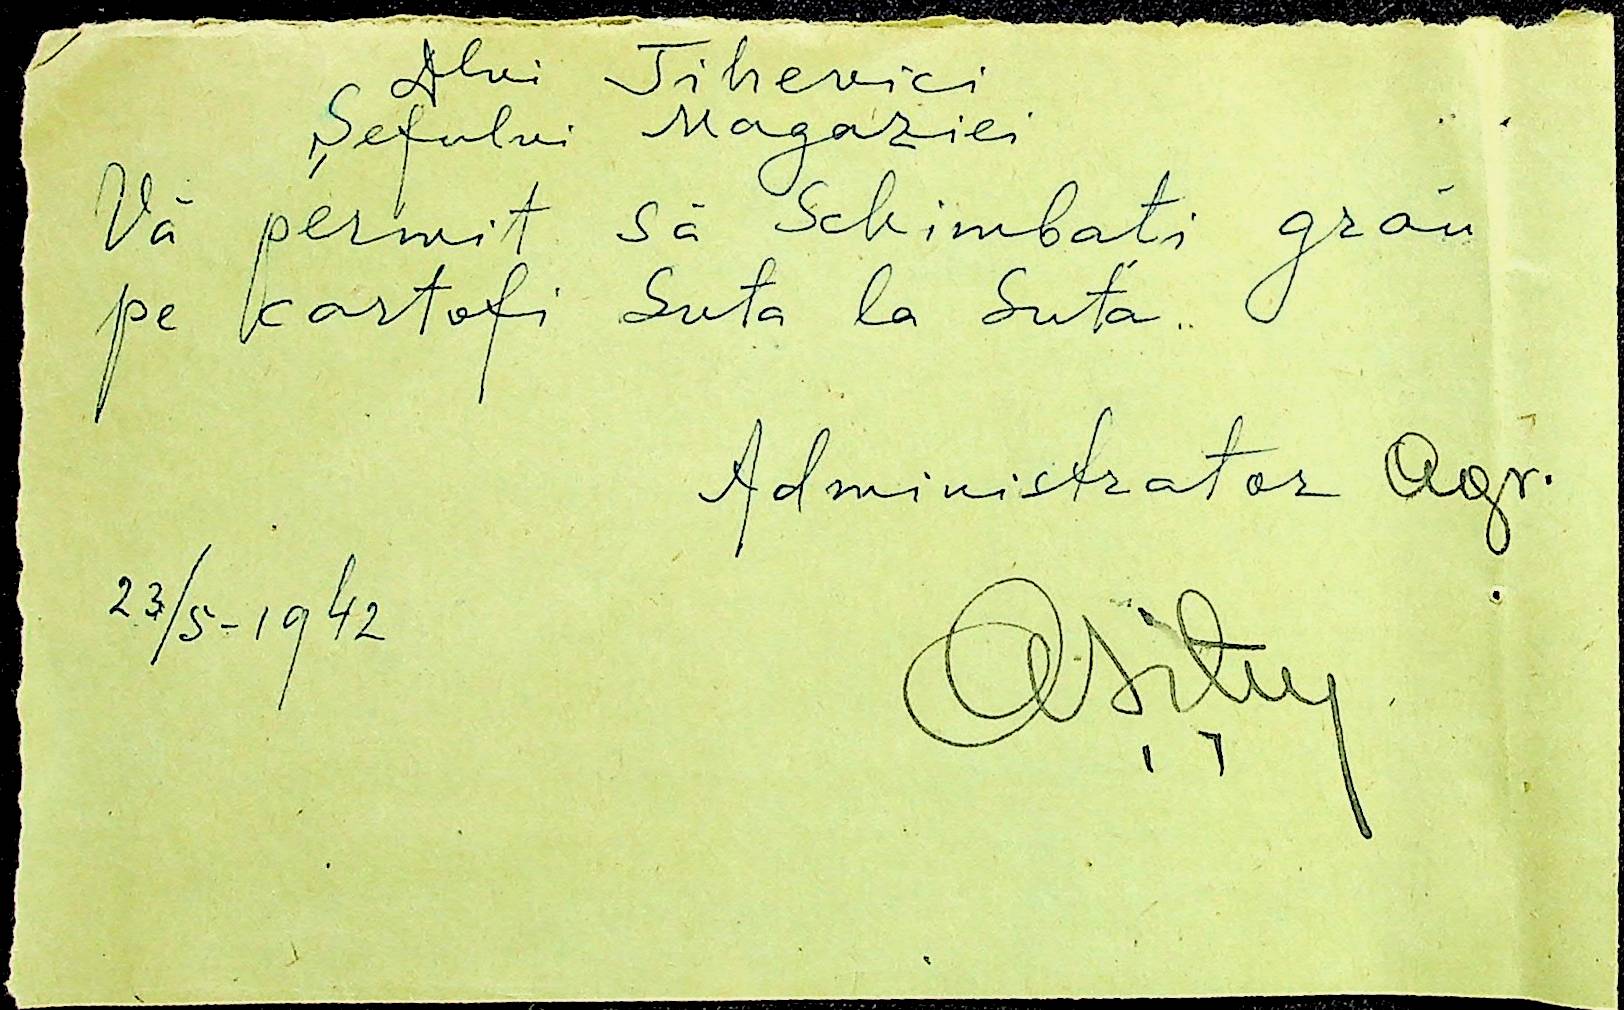 Dlui Tihevici
Șefului Magaziei
Vă permit să Schimbati grâu
pe cartofi Suta la Sută.
Administrator Agr.
23/5-1942